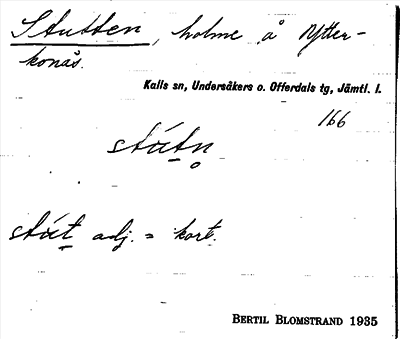 Stutten, holme å Ytter-
konås.
Kalls sn, Undersåkers o. Offerdals tg, Jämtl. l.
166
stútn̥
stút adj. = kort.
BERTIL BLOMSTRAND 1935